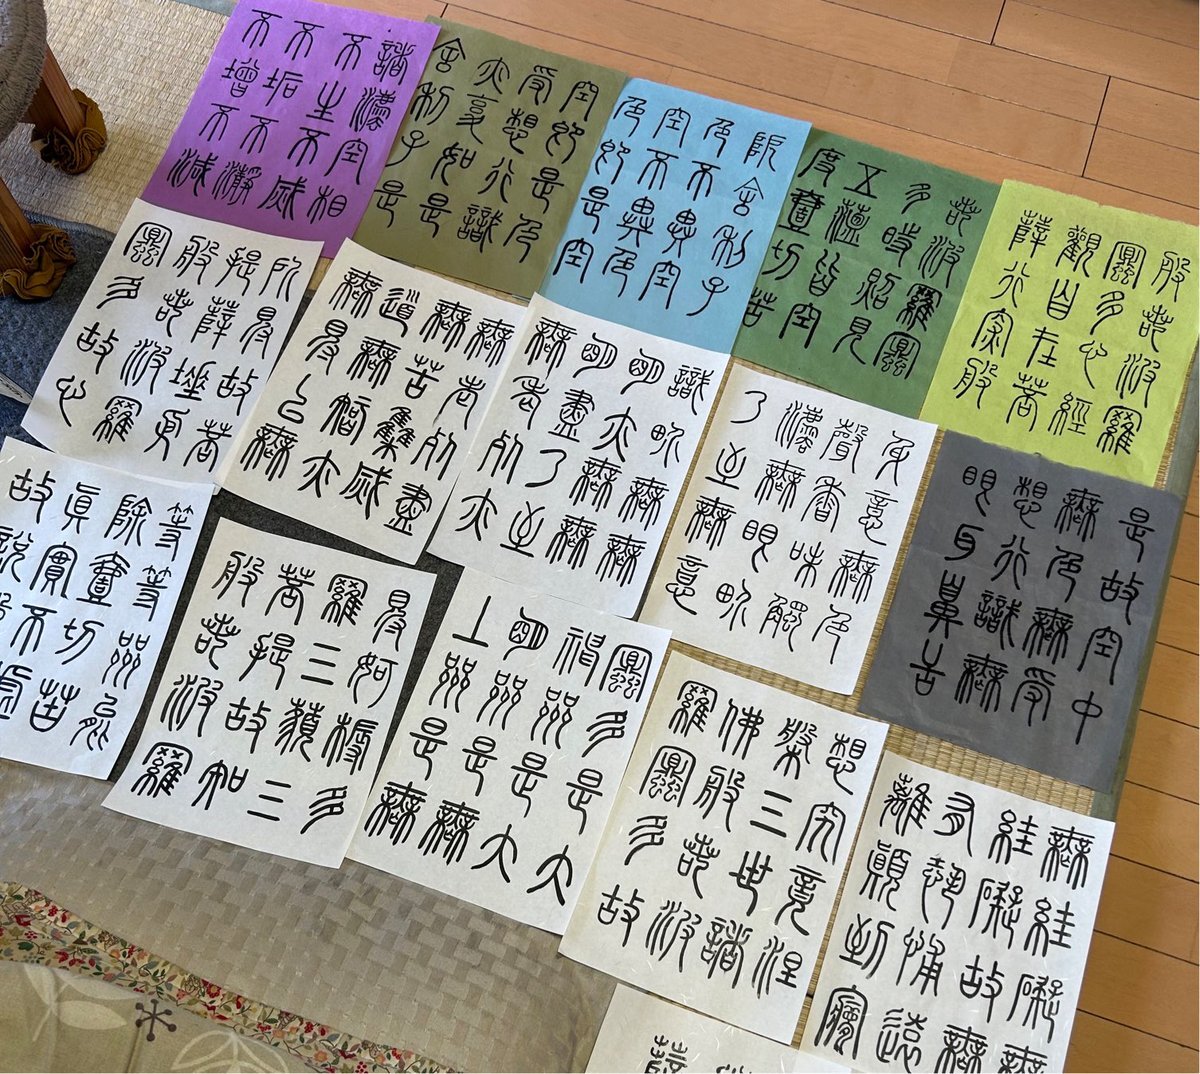 般若波羅
蜜多心經
觀自在菩
薩行深般
若波羅蜜
多時照見
五蘊皆空
度壹切苦
厄舍利子
色不異空
空不異色
色即是空
空即是色
受想行識
亦復如是
舍利子是
諸法空相
不生不滅
不垢不淨
不增不減
是故空中
無色無受
想行識無
眼耳鼻舌
身意無色
聲香味觸
法無眼界
乃至無意
識界無無
明亦無無
明盡乃至
無老死亦
無老死盡
無苦集滅
道無智亦
無得以無
所得故菩
提薩埵依
般若波羅
蜜多故心
無罣礙無
罣礙故無
有恐怖遠
離顛倒夢
想究竟涅
槃三世諸
佛般若波
羅蜜多故
得阿耨多
羅三藐三
菩提故知
般若波羅
蜜多是大
神咒是大
明咒是無
上咒是無
等等咒能
除壹切苦
真實不虛
故說般